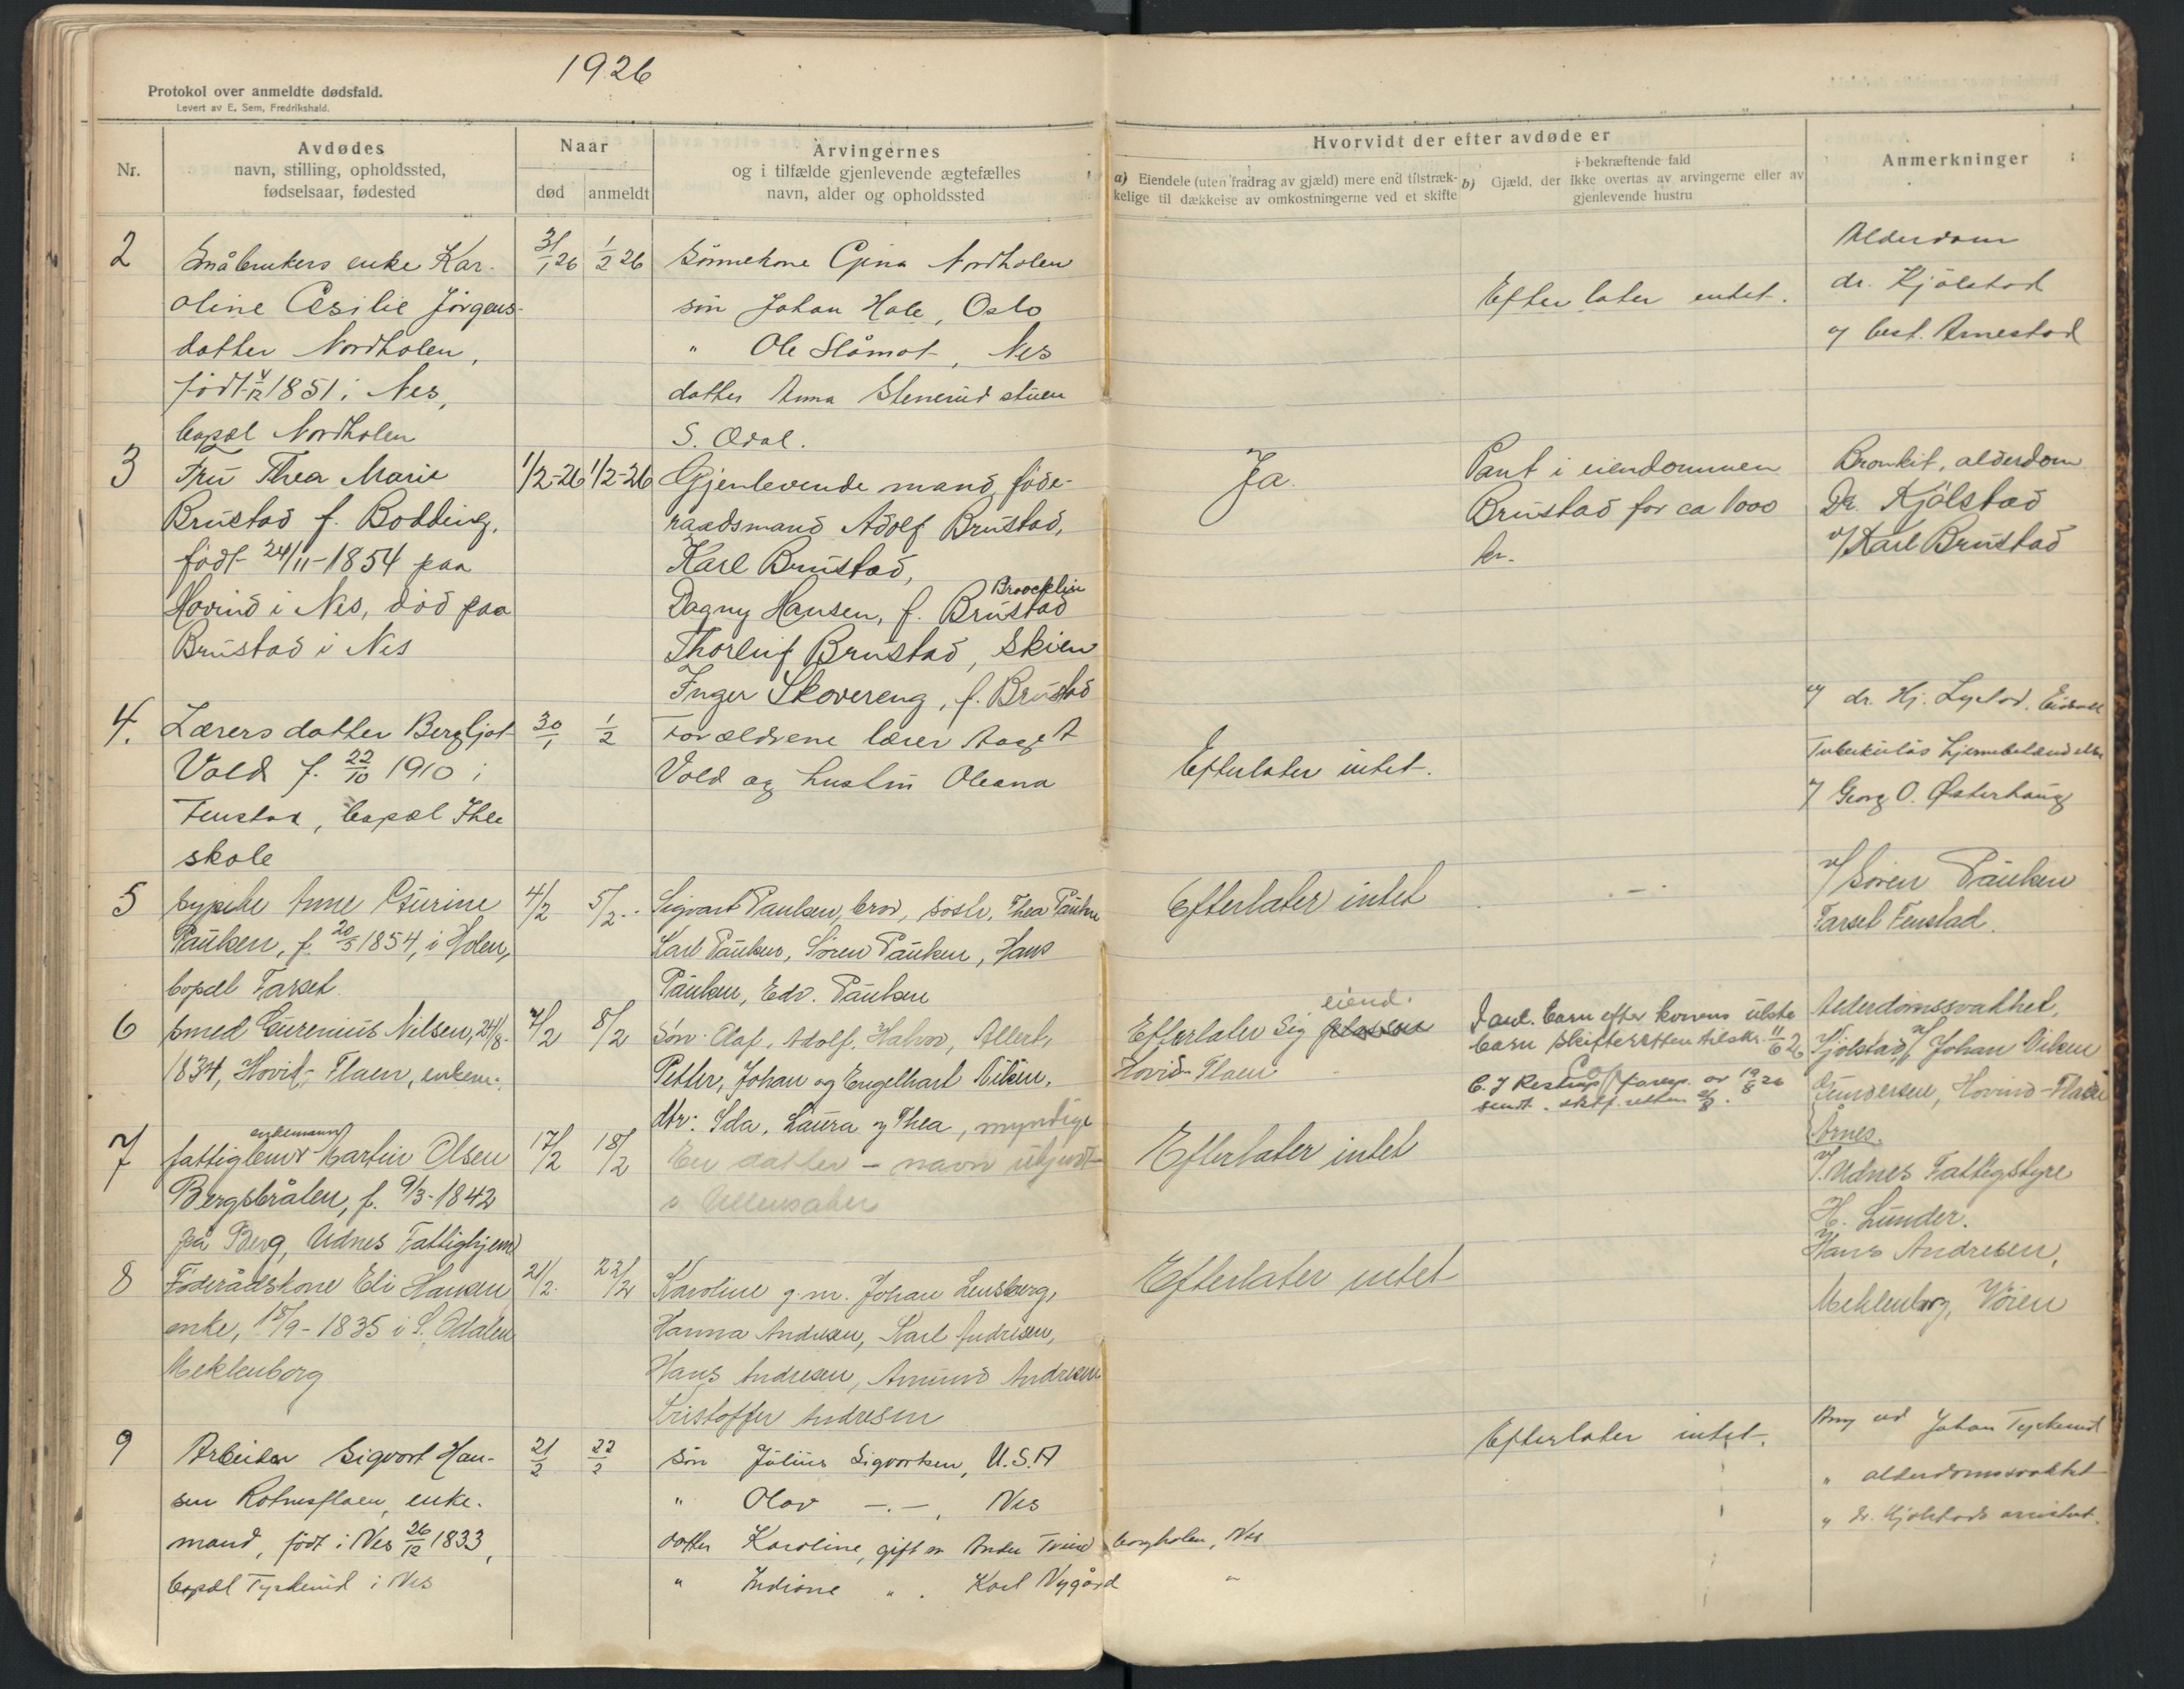 1926
Protokol over anmeldte dødsfald.
Levert av E. Sem, Fredrikshald.
Nr.
Avdødes
navn, stilling, opholdssted,
fødselsaar, fødested
Naar
død
anmeldt
Arvingernes
og i tilfælde gjenlevende ægtefælles
navn, alder og opholdssted
Hvorvidt der efter avdøde er
a) Eiendele (uten fradrag av gjæld) mere end tilstræk-
kelige til dækkelse av omkostningerne ved et skifte
i bekræftende fald
b) Gjæld, der ikke overtas av arvingerne eller av
gjenlevende hustru
Anmerkninger
2
Småbrukers enke Kar-
oline Cesilie Jörgens-
datter Nordholen,
født 4/12 1851 i Nes,
bopæl Nordholen
31/1 26
1/2 26
Sönnekone Gina Nordholen
sön Johan Hole, Oslo
" Ole Slåmot, Nes
datter Anna Stenerud stuen
S. Odal.
Efterlater intet.
Alderdom
dr. Kjölstad
og best. Arnestad
3
Fru Thea Marie
Brustad f. Bodding,
født 24/11-1854 paa
Hovind i Nes, död paa
Brustad i Nes
1/2-26
1/2-26
Gjenlevende mand, föde-
raadsmand Adolf Brustad,
Karl Brustad,
Broocklin
Dagny Hansen, f. Brustad
Thorleif Brustad, Skien
Inger Skovereng, f. Brustad
Ja.
Pant i eiendommen
Brustad for ca 1000
kr.
Bronkit, alderdom
Dr. Kjölstad
v/ Karl Brustad
4.
Lærers datter Bergljot
Vold f. 22/10 1910 i
Fenstad, bopæl Ihle
skole
30/1
1/2
Forældrene lærer Aage A
Vold og hustru Oleana
Efterlater intet.
v/ dr. Hj. Lystad. Eidsvoll
Tuberkuløs hjernebetændelse
v/ Georg O. Østerhaug
5
bypike Anne Gurine
Paulsen, f. 20/5 1854, i Holen,
bopæl Farset
4/2
5/2
Sigvart Paulsen, bror, søstr. Thea Paulsen
Karl Paulsen, Søren Paulsen, Hans
Paulsen, Edv. Paulsen
Efterlater intet
- " -
v/ Søren Paulsen
Farset Fenstad.
6
smed Gurenius Nilsen, 24/8-
1834, Hovid-Flaen, enkem.
7/2
8/2
Søn: Olaf, Adolf, Halvor, Albert,
Petter, Johan og Engelhart Viken,
dtr: Ida, Laura og Thea, myndige
eiend.
Efterlater sig plassen
Hovid-Flaen
Jaul. barn efter konens uekte
barn skifteretten tilskr. 11/6 26
C. J Restrup foresp. av 19/8 26
sendt skif.retten
Alderdomssvakhet,
Kjölstad, v/ Johan Viken
Gundersen, Hovind-Flaen
Årnes.
7
enkemann
fattiglem Martin Olsen
Bergsbråten, f. 9/3-1842
på Berg, Udnes Fattighjem
17/2
18/2
En datter - navn ukjendt
i Ullensaker
Efterlater intet
v/ Udnes Fattigstyre
H. Lunder.
8
Föderådskone Eli Hansen
enke, 15/9-1835 i S. Odalen
Meklenborg
21/2
22/2
Karoline g.m. Johan Lensberg,
Hanna Andresen, Karl Andresen,
Hans Andresen, Amund Andresen
Kristoffer Andresen
Efterlater intet
v/ Hans Andresen,
Meklenborg, Vöien
9
Arbeider Sigvart Han-
sen Rotnesflaen, enke-
mand, født i Nes 26/12 1833,
bopæl Tyskerud i Nes
21/2
22/2
Sön Julius Sigvartsen, U.S.A
" Olav -.-, Nes
datter Karoline, gift m Anders Tveid borgholen, Nes
" Indiane " . Karl Nygård "
Efterlater intet.
Anm ved Johan Tyskerud
" alderdomssvakhet
" dr. Kjölstads assistent.